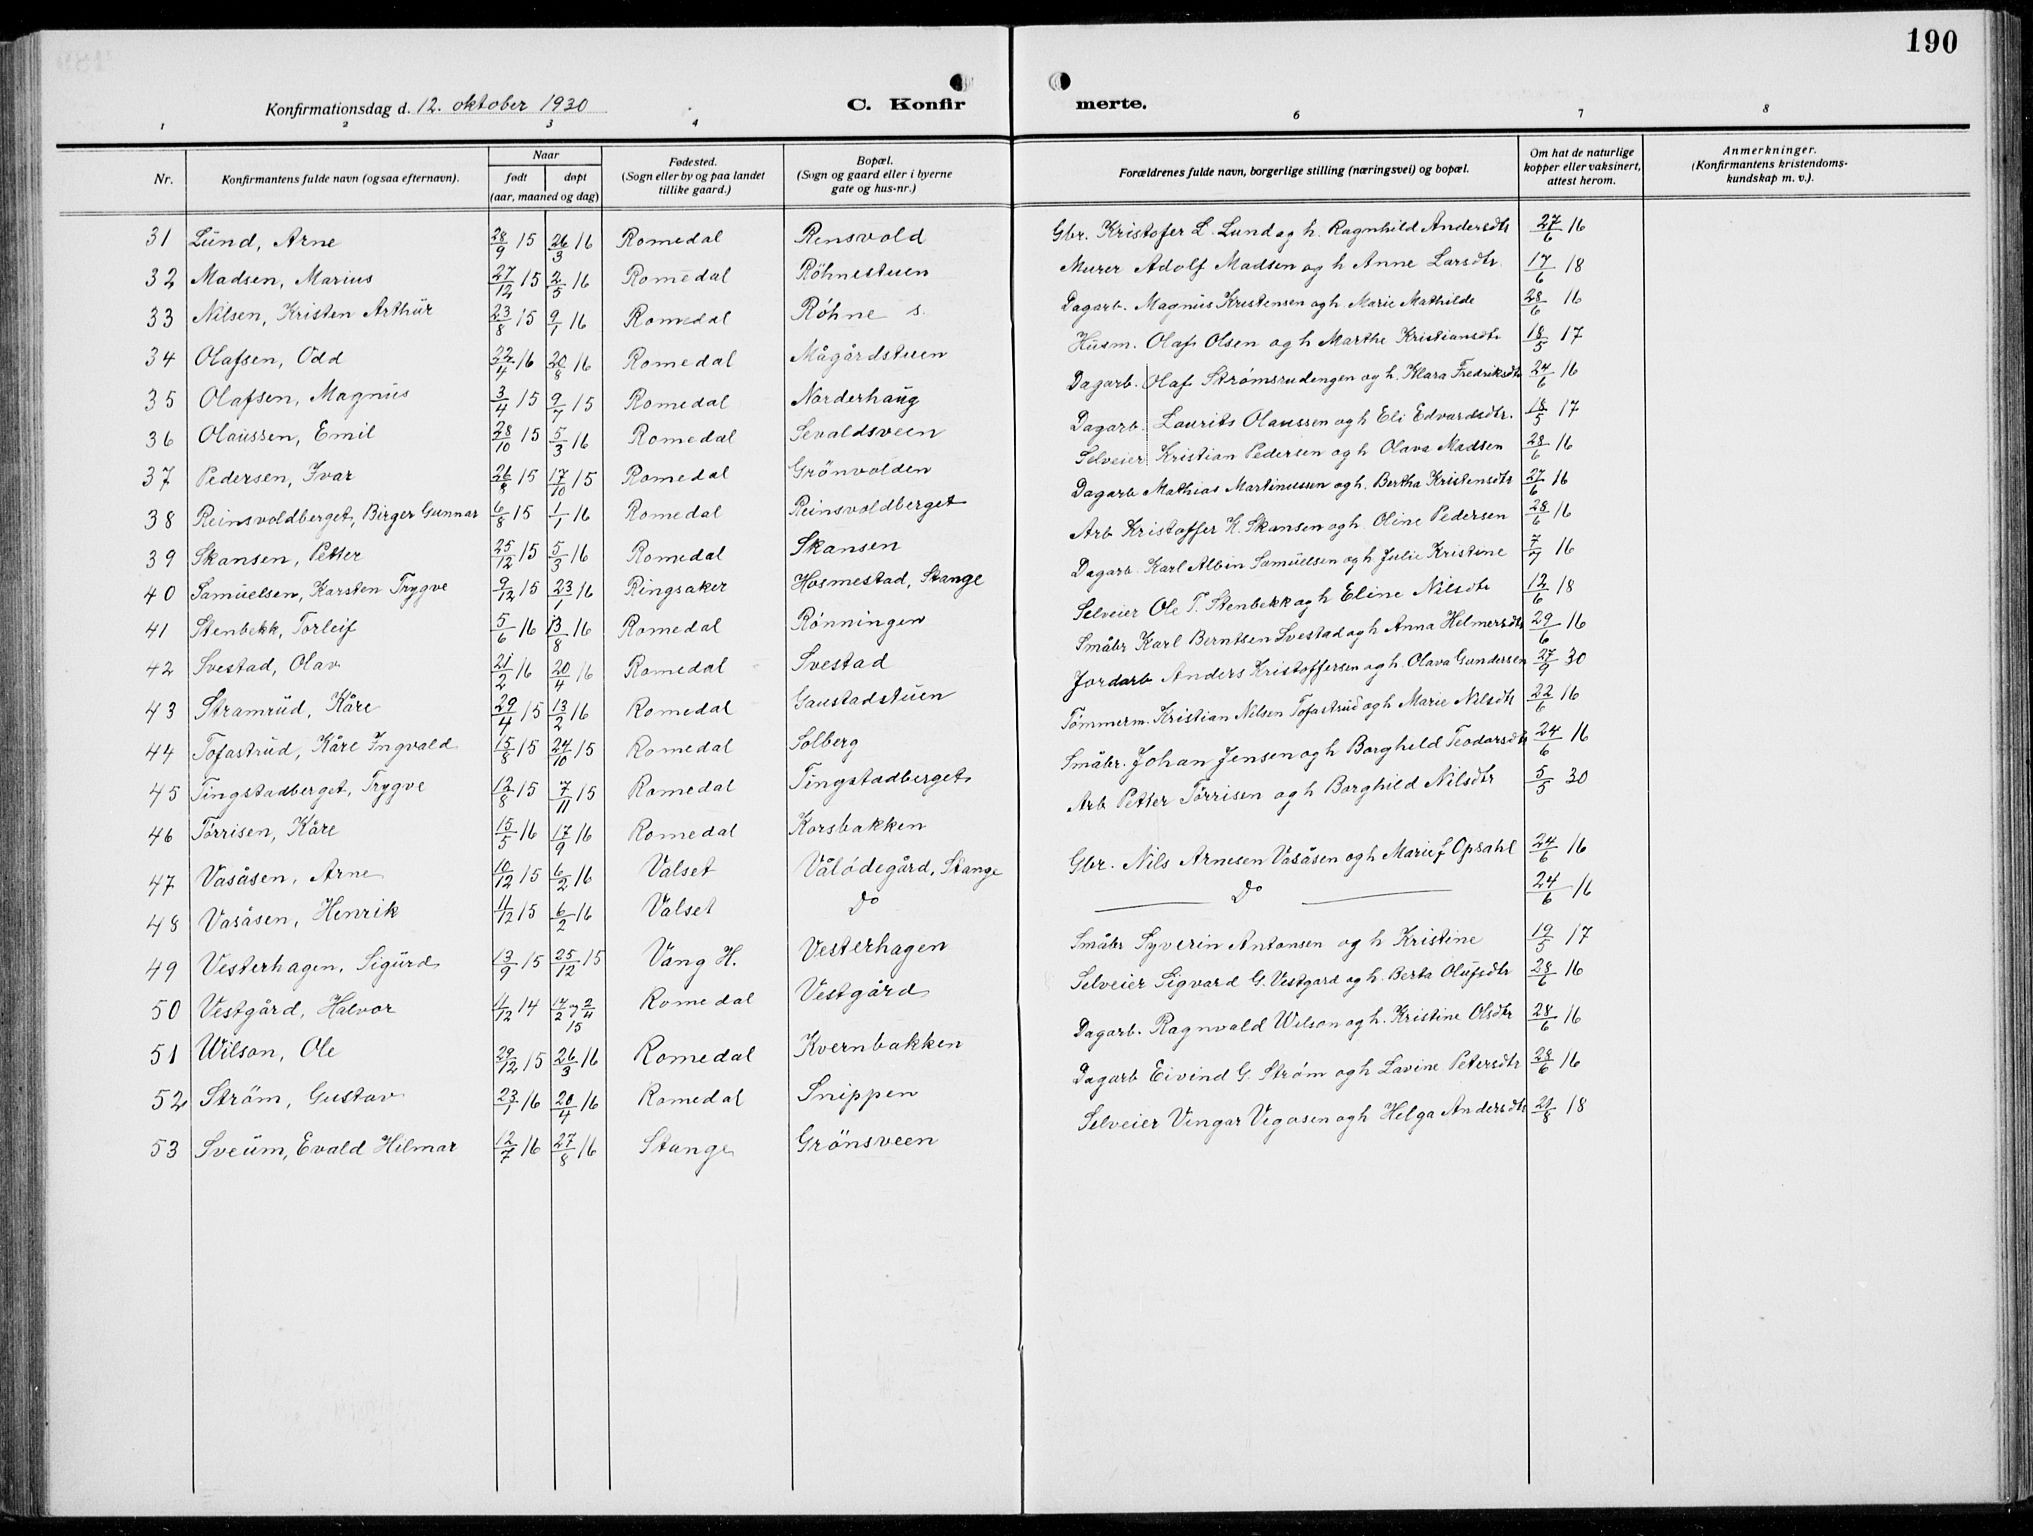 190
Konfirmationsdag d. 12. oktober 1930 C. Konfir merte.
1 2 3 4 6 7 8
Nr. Konfirmantens fulde navn (ogsaa efternavn). Naar født døpt (aar, maaned og dag) Fødested. (Sogn eller by og paa landet tillike gaard.) Bopæl. (Sogn og gaard eller i byerne gate og hus-nr.) Forældrenes fulde navn, borgerlige stilling (næringsvei) og bopæl. Om hat de naturlige kopper eller vaksinert, attest herom. Anmerkninger. (Konfirmantens kristendoms-kundskap m. v.).
31 Lund, Arne 28/9 15 26/3 16 Romedal Rensvold Gbr. Kristofer L. Lund og h. Ragnhild Andersdtr 27/6 16
32 Madsen, Marius 27/12 15 2/5 16 Romedal Röhnestuen Murer Adolf Madsen og h Anne Larsdtr. 17/6 18
33 Nilsen, Kristen Arthur 23/8 15 9/1 16 Romedal Røhne s. Dagarb. Magnus Kristensen og h Marie Mathilde 28/6 16
34 Olafsen, Odd 22/4 16 20/8 16 Romedal Mågårdstuen Husm. Olaf Olsen og h Marthe Kristiansdtr 18/5 17
35 Olafsen, Magnus 3/4 15 9/7 15 Romedal Norderhaug Dagarb. Olaf Strømsrudengen og h. Klara Fredriksdtr 24/6 16
36 Olaussen, Emil 28/10 15 5/3 16 Romedal Sevaldsveen Dagarb. Laurits Olaussen og h Eli Edvardsdtr. 18/5 17
37 Pedersen, Ivar 26/8 15 17/10 15 Romedal Grönvolden Selveier Kristian Pedersen og h Olava Madsen 28/6 16
38 Reinsvoldberget, Birger Gunnar 6/8 15 1/1 16 Romedal Reinsvoldberget Dagarb Mathias Martinussen og h. Bertha Kristensdtr 27/6 16
39 Skansen, Petter 25/12 15 5/3 16 Romedal Skansen Arb Kristoffer K. Skansen og h. Oline Pedersen 28/6 16
40 Samuelsen, Karsten Trygve 9/12 15 23/1 16 Ringsaker Hosmestad, Stange Dagarb. Karl Albin Samuelsen og h. Julie Kristine 7/7 16
41 Stenbekk, Torleif 5/6 16 13/8 16 Romedal Rönningen Selveier Ole T. Stenbekk og h Eline Nilsdtr 12/6 18
42 Svestad, Olav 21/2 16 20/4 16 Romedal Svestad Småbr Karl Berntsen Svestad og h Anna Helmersdtr 29/6 16
43 Stramrud, Kåre 29/4 15 13/2 16 Romedal Gaustadstuen Jordarb Anders Kristoffersen og h. Olava Gundersen 27/9 30
44 Tofastrud, Kåre Ingvald 15/8 15 24/10 15 Romedal Solberg Tømmerm. Kristian Nilsen Tofastrud og h Marie Nilsdtr 22/6 16
45 Tingstadberget, Trygve 12/8 15 7/11 15 Romedal Tingstadberget Småbr. Johan Jensen og h Borghild Teodorsdtr 24/6 16
46 Tørrisen, Kåre 15/5 16 17/9 16 Romedal Korsbakken Arb Petter Tørrisen og h Borghild Nilsdtr 5/5 30
47 Vasåsen, Arne 10/12 15 6/2 16 Valset Vålödegård, Stange Gbr. Nils Arnesen Vasåsen og h Marie f Opsahl 24/6 16
48 Vasåsen, Henrik 11/12 15 6/2 16 Valset Do Do 24/6 16
49 Vesterhagen, Sigurd 13/9 15 25/12 15 Vang H. Vesterhagen Småbr Syverin Antonsen og h Kristine 19/5 17
50 Vestgård, Halvor 4/12 14 14/2 og 2/11 15 Romedal Vestgård Selveier Sigvard G. Vestgard og h. Berta Olufsdtr 28/6 16
51 Wilson, Ole 29/12 15 26/3 16 Romedal Kvernbakken Dagarb. Ragnvald Wilson og h. Kristine Olsdtr 28/6 16
52 Ström, Gustav 23/1 16 20/4 16 Romedal Snippen Dagarb Eivind G. Strøm og h Lavine Petersdtr 28/6 16
53 Sveum, Evald Hilmar 12/7 16 27/8 16 Stange Grönsveen Selveier Vingar Vegosen og h Helga Andersdtr 21/8 18